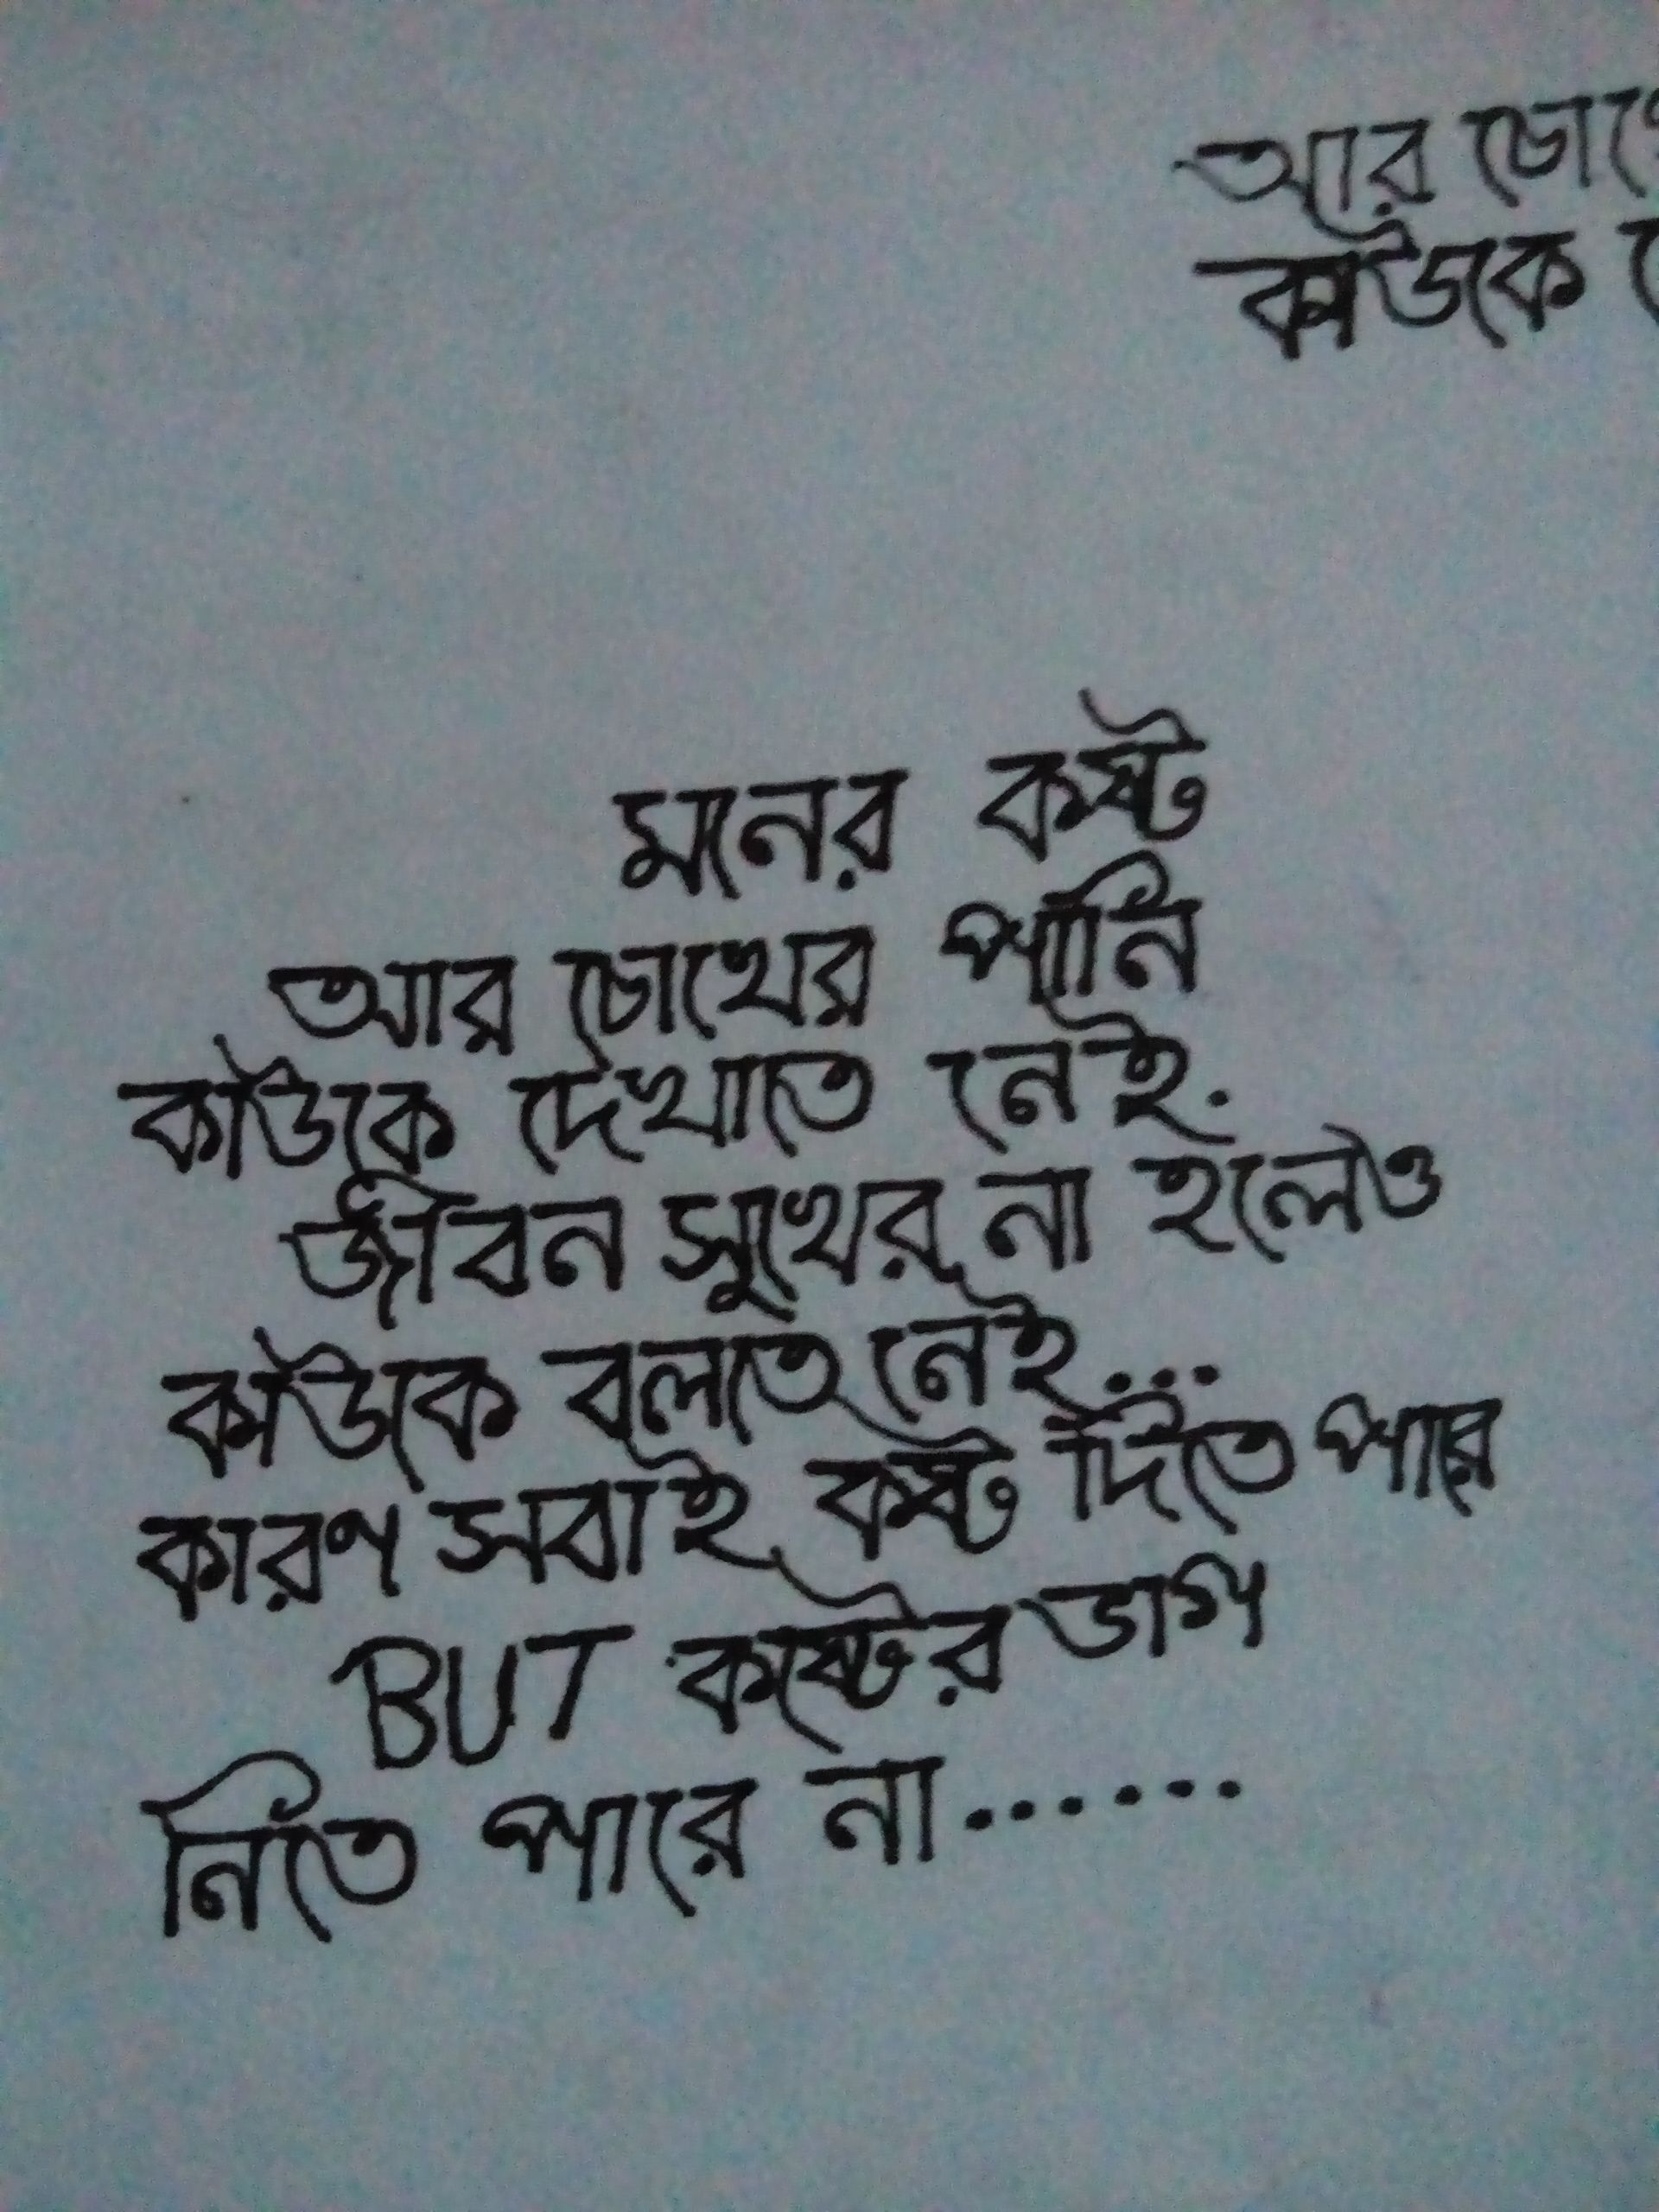 আর চোখে
কাউকে
মনের কষ্ট
আর চোখের পানি
কাউকে দেখাতে নেই.
জীবন সুখের না হলেও
কাউকে বলতে নেই...
কারণ সবাই কষ্ট দিতে পারে
BUT কষ্টের ভাগ
নিতে পারে না......